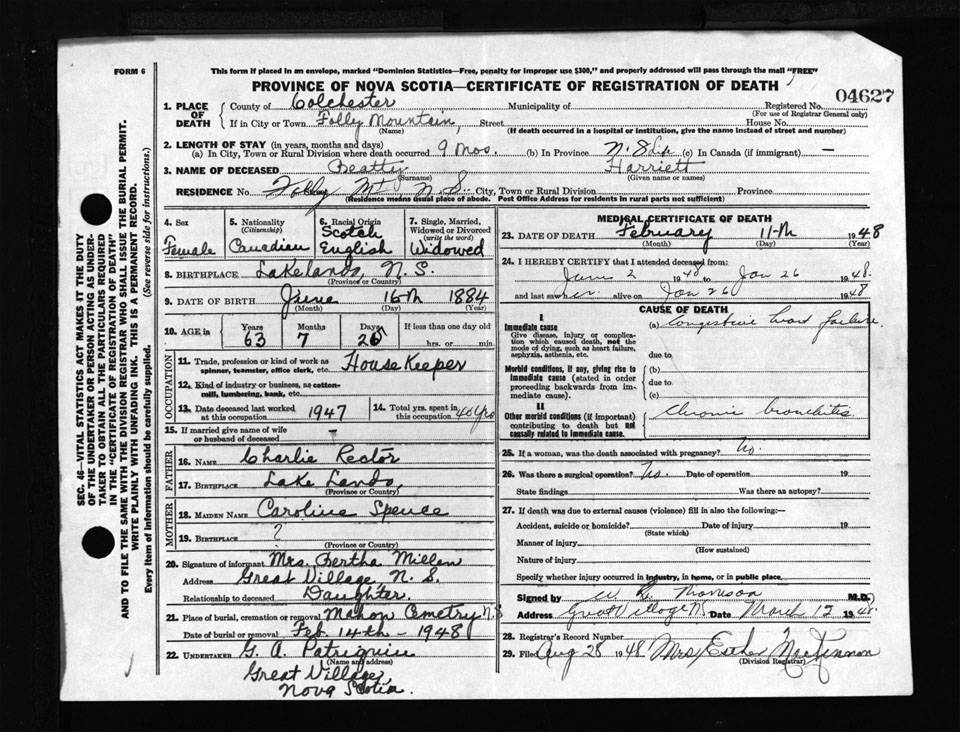 FORM 6
This form if placed in an envelope, marked "Dominion Statistics—Free, penalty for improper use $300," and properly addressed will pass through the mail "FREE"
PROVINCE OF NOVA SCOTIA—CERTIFICATE OF REGISTRATION OF DEATH
04627
1. PLACE OF DEATH
County of Colchester Municipality of Registered No.
(For use of Registrar General only)
If in City or Town Folly Mountain, Street House No.
(Name) (If death occurred in a hospital or institution, give the name instead of street and number)
2. LENGTH OF STAY (in years, months and days)
(a) In City, Town or Rural Division where death occurred 9 Mos. (b) In Province N. S. Life (c) In Canada (if immigrant) —
3. NAME OF DECEASED Beatty Harriett
(Surname) (Given name or names)
RESIDENCE No. Folly Mt N S. City, Town or Rural Division Province
(Residence means usual place of abode. Post Office Address for residents in rural parts not sufficient)
4. Sex
Female
5. Nationality (Citizenship)
Canadian
6. Racial Origin
Scotch English
7. Single, Married, Widowed or Divorced (write the word)
Widowed
8. BIRTHPLACE Lakelands, N. S.
(Province or Country)
9. DATE OF BIRTH June 16th 1884
(Month) (Day) (Year)
10. AGE in
Years 63
Months 7
Days 26
If less than one day old
hrs. or min.
OCCUPATION
11. Trade, profession or kind of work as spinner, teamster, office clerk, etc. House Keeper
12. Kind of industry or business, as cotton-mill, lumbering, bank, etc.
13. Date deceased last worked at this occupation 1947
14. Total yrs. spent in this occupation 40 yrs
15. If married give name of wife or husband of deceased –
FATHER
16. NAME Charlie Rector
17. BIRTHPLACE Lake Lands,
(Province or Country)
MOTHER
18. MAIDEN NAME Caroline Spence
19. BIRTHPLACE ?
(Province or Country)
20. Signature of informant Mrs. Bertha Millen
Address Great Village, N. S.
Relationship to deceased Daughter.
21. Place of burial, cremation or removal Mahon Cemetry N.S
Date of burial or removal Feb. 14th – 1948
22. UNDERTAKER G. A. Patriquin
(Name and address)
Great Village,
Nova Scotia.
MEDICAL CERTIFICATE OF DEATH
23. DATE OF DEATH February 11-th 1948
(Month) (Day) (Year)
24. I HEREBY CERTIFY that I attended deceased from:
June 2 1948 to Jan 26 1948.
and last saw her alive on Jan 26 1948
CAUSE OF DEATH
I
Immediate cause
Give disease, injury or complication which caused death, not the mode of dying, such as heart failure, asphyxia, asthenia, etc.
(a) Congestive heart failure.
due to
Morbid conditions, if any, giving rise to immediate cause (stated in order proceeding backwards from immediate cause).
(b)
due to
(c)
II
Other morbid conditions (if important) contributing to death but not causally related to immediate cause.
Chronic bronchitis
25. If a woman, was the death associated with pregnancy? No.
26. Was there a surgical operation? No. Date of operation 19
State findings Was there an autopsy?
27. If death was due to external causes (violence) fill in also the following:—
Accident, suicide or homicide? Date of injury 19
(State which)
Manner of injury
(How sustained)
Nature of injury
Specify whether injury occurred in industry, in home, or in public place
Signed by W R Morrison M.D.
Address Great Village N.S. Date March 12 1948.
28. Registrar's Record Number
29. Filed Aug 28 1948. Mrs Esther MacKinnon
(Division Registrar)
SEC. 46—VITAL STATISTICS ACT MAKES IT THE DUTY
OF THE UNDERTAKER OR PERSON ACTING AS UNDER-
TAKER TO OBTAIN ALL THE PARTICULARS REQUIRED
IN THE "CERTIFICATE OF REGISTRATION OF DEATH"
AND TO FILE THE SAME WITH THE DIVISION REGISTRAR WHO SHALL ISSUE THE BURIAL PERMIT.
WRITE PLAINLY WITH UNFADING INK. THIS IS A PERMANENT RECORD.
Every item of information should be carefully supplied. (See reverse side for instructions.)